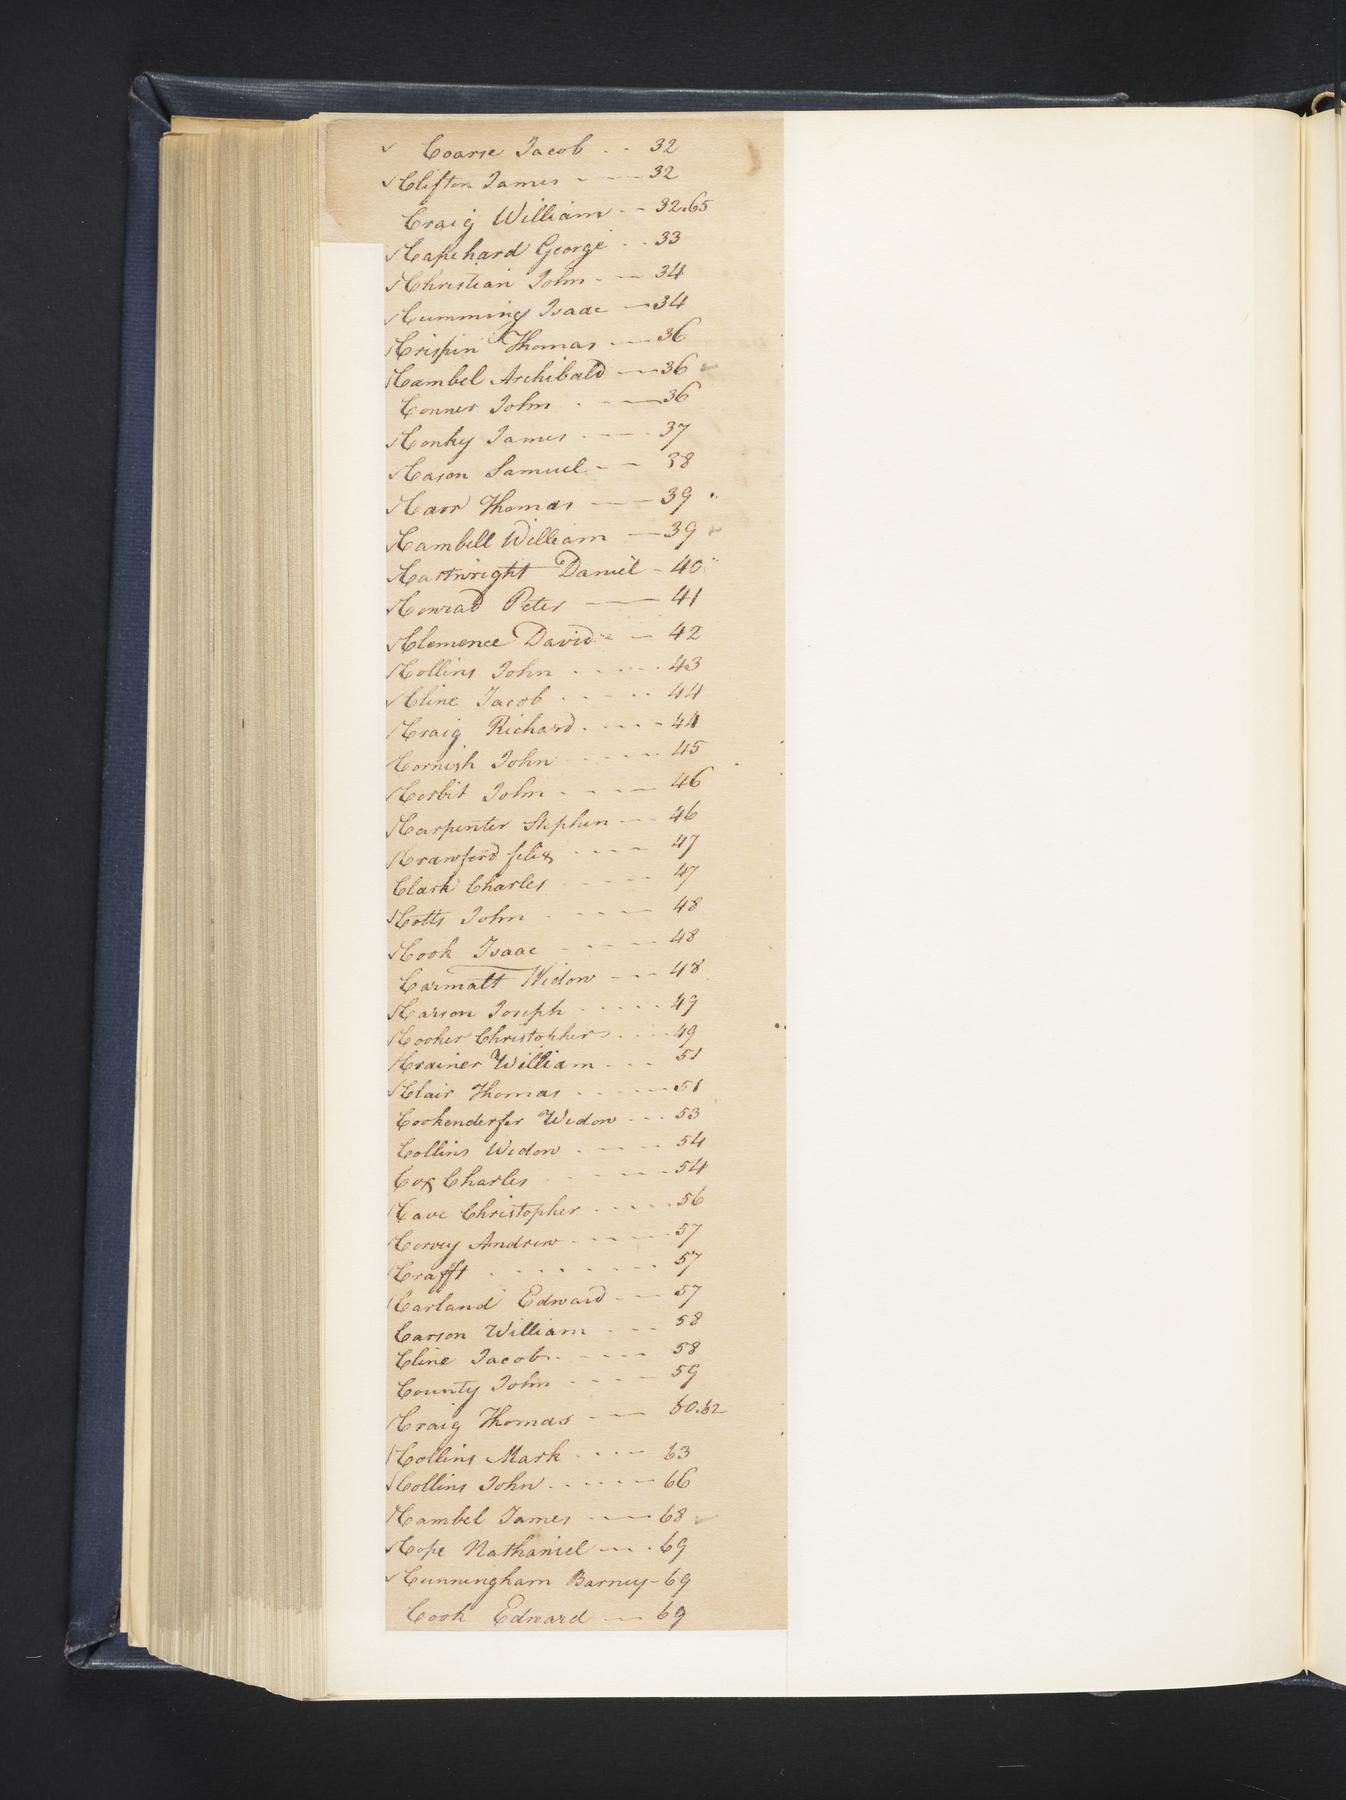 ✓ Coarse Jacob . - 32
✓ Clifton James - — 32
Craig William - - 32.65
✓ Capehard George . . 33
✓ Christian John - — 34
✓ Cumming Isaac — 34
✓ Crispin Thomas — 36
✓ Cambel Archibald — 36 ✓
Conner John . — 36
✓ Conky James . — 37
✓ Cason Samuel - — 38
✓ Carr Thomas — — 39
✓ Cambell William — 39 ✓
✓ Cartwright Daniel - 40
✓ Conrad Peter — 41
✓ Clemence David - — 42
✓ Collins John . . . . . 43
✓ Cline Jacob . . . . . 44
✓ Craig Richard . - - - 44
✓ Cornish John . . . . - 45
✓ Corbit John . - - — 46
✓ Carpenter Stephen - — 46
✓ Crawford felix - - - — 47
Clark Charles . - - — 47
✓ Cotts John . . - - — 48
✓ Cook Isaac . - - — 48
Carmatt Widow - - — 48
✓ Carson Joseph . . . . . 49
✓ Cooker Christopher . . . 49
✓ Crainer William . . . 51
✓ Clair Thomas . . . . — 51
Cookenderfer Widow - - - 53
Collins Widow . - - — 54
Cox Charles . . - - — 54
✓ Cave Christopher . . . . . 56
✓ Corvey Andrew - - - — 57
✓ Crafft . . . . . . . — 57
✓ Carland Edward - — 57
Carson William . - - 58
Cline Jacob . . - - — 58
County John - - - — 59
✓ Craig Thomas - — 60.62
✓ Collins Mark . - - — 63
✓ Collins John . . . . - — 66
✓ Cambel James - — 68 ✓
✓ Cope Nathaniel — . 69
✓ Cunningham Barney - 69
Cook Edward — 69